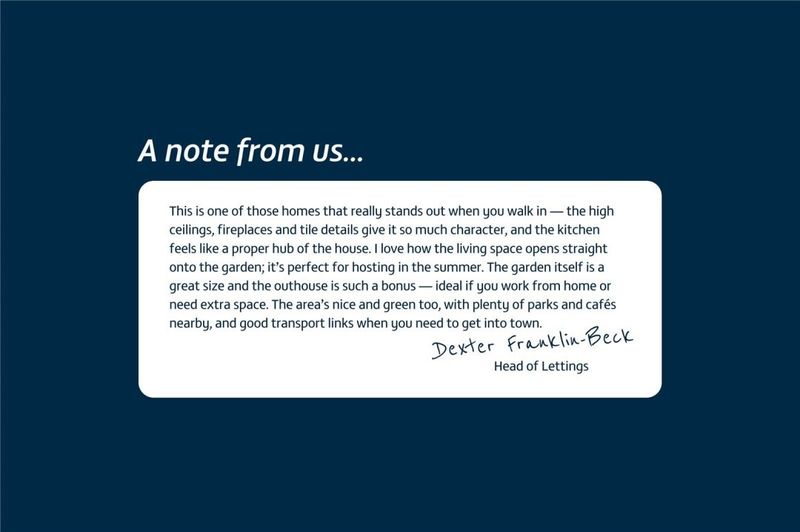 A note from us...
This is one of those homes that really stands out when you walk in — the high
ceilings, fireplaces and tile details give it so much character, and the kitchen
feels like a proper hub of the house. I love how the living space opens straight
onto the garden; it's perfect for hosting in the summer. The garden itself is a
great size and the outhouse is such a bonus — ideal if you work from home or
need extra space. The area's nice and green too, with plenty of parks and cafés
nearby, and good transport links when you need to get into town.
Dexter Franklin-Beck
Head of Lettings